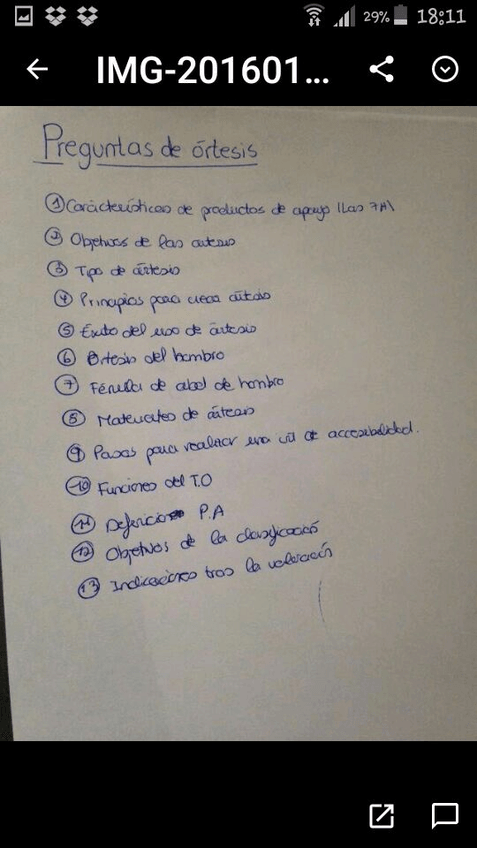 29% 18:11
IMG-201601...
Preguntas de órtesis
1 Características de productos de apoyo (Las 7A)
2 Objetivos de las órtesis
3 Tipo de órtesis
4 Principios para crear órtesis
5 Éxito del uso de órtesis
6 Órtesis del hombro
7 Férula de abd de hombro
8 Materiales de órtesis
9 Pasos para realizar una de accesibilidad.
10 Funciones del T.O
11 Definición P.A
12 Objetivos de la clasificación
13 Indicaciones tras la valoración